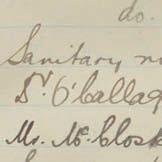 do.
Sanitary
Dr. O'Callag
Mr. McClosk